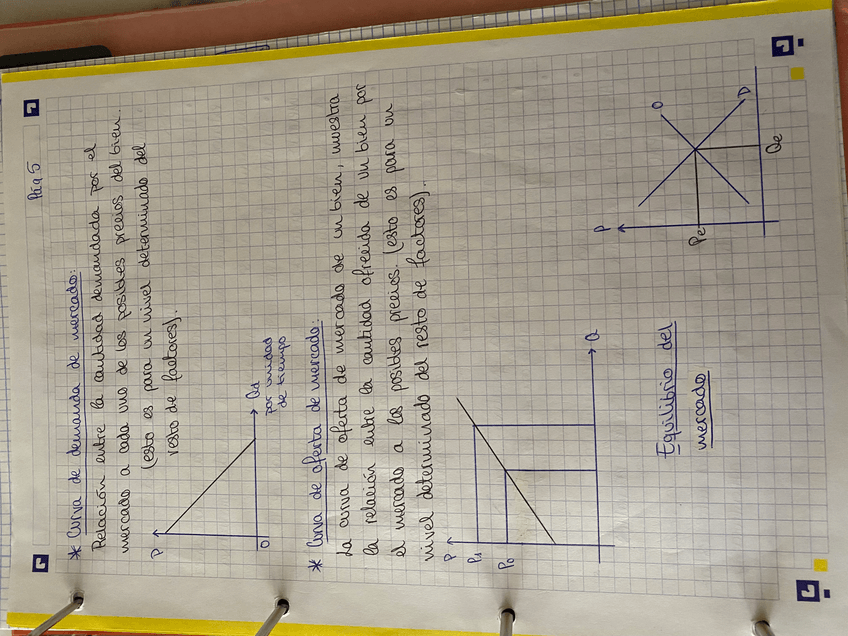 Pág 5
* Curva de demanda de mercado:
Relación entre la cantidad demandada por el
mercado a cada uno de los posibles precios del bien.
(esto es para un nivel determinado del
resto de factores).
P
O
Qd
por unidad
de tiempo
* Curva de oferta de mercado:
La curva de oferta de mercado de un bien, muestra
la relación entre la cantidad ofrecida de un bien por
el mercado a los posibles precios. (esto es para un
nivel determinado del resto de factores).
P
P1
P0
Q
Equilibrio del
mercado
P
Pe
O
D
Qe